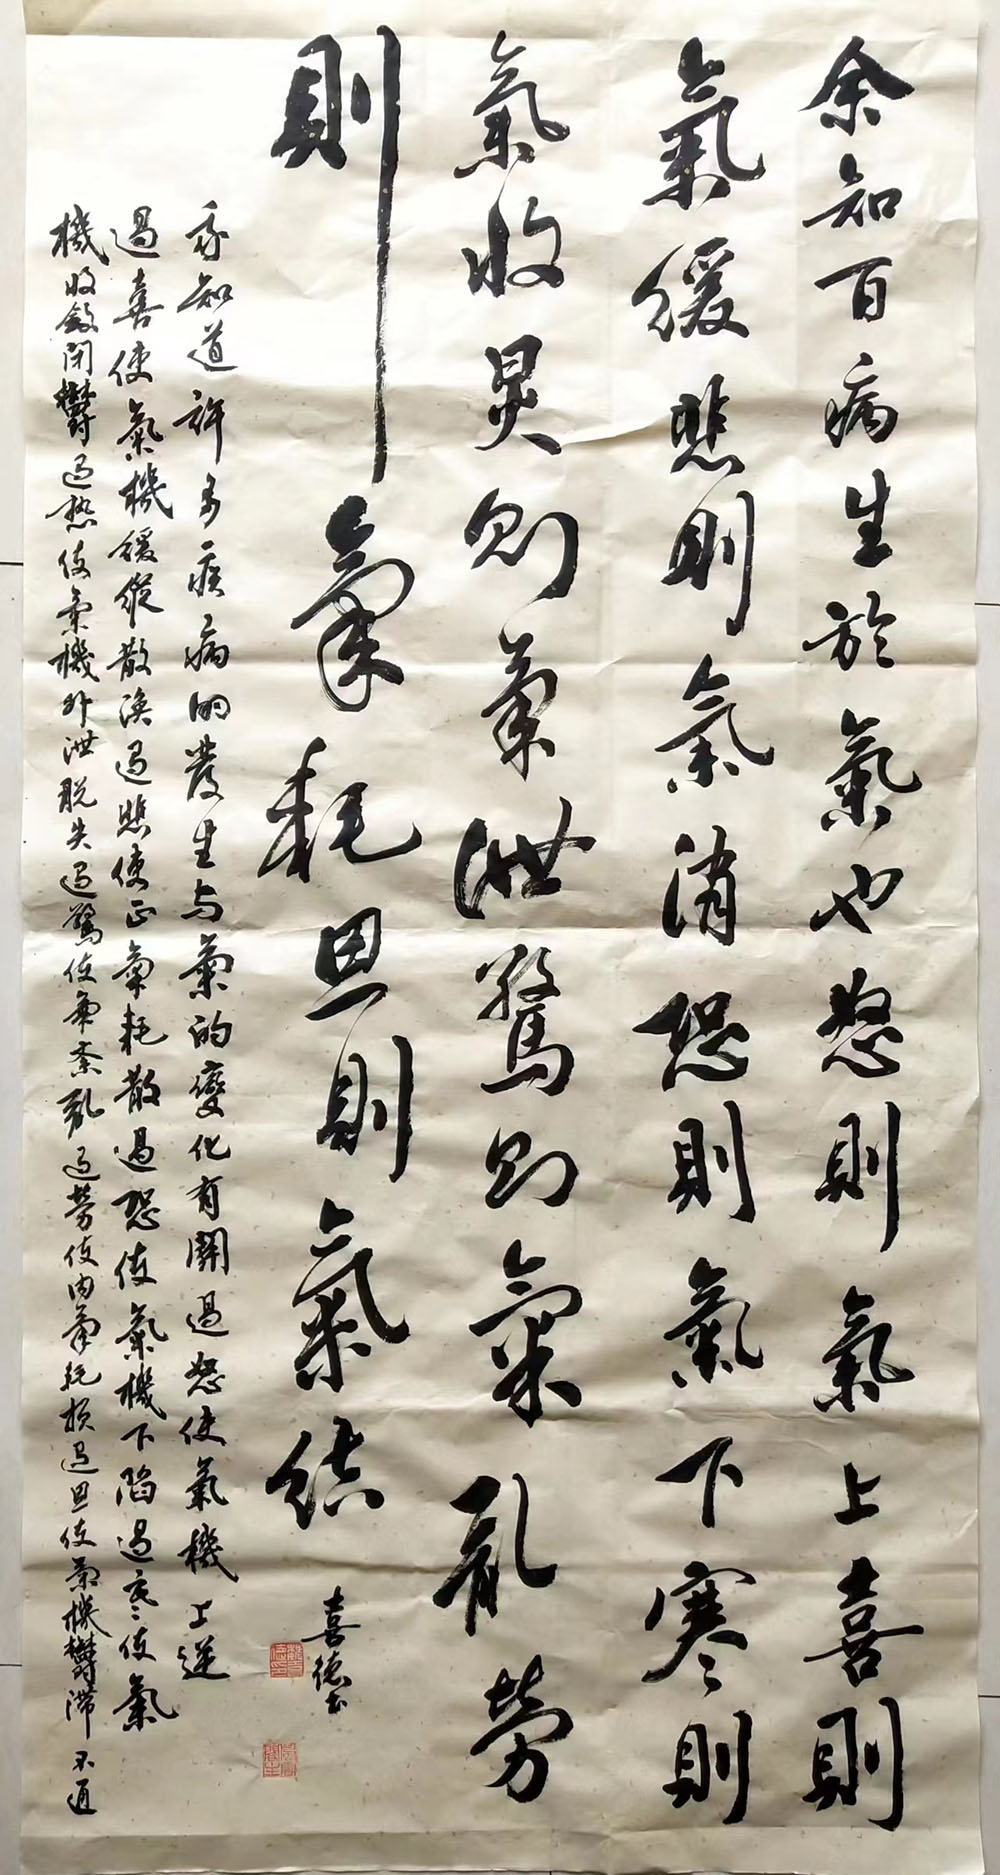 余知百病生於氣也怒則氣上喜則
氣緩悲則氣消恐則氣下寒則
氣收炅則氣泄驚則氣亂勞
則氣耗思則氣結
喜德书
我知道許多疾病的發生与氣的變化有關過怒使氣機上逆
過喜使氣機緩縱散渙過悲使正氣耗散過恐使氣機下陷過寒使氣
機收斂闭鬱過热使氣機外泄脱失過驚使氣紊亂過勞使内氣耗损過思使氣機鬱滞不通